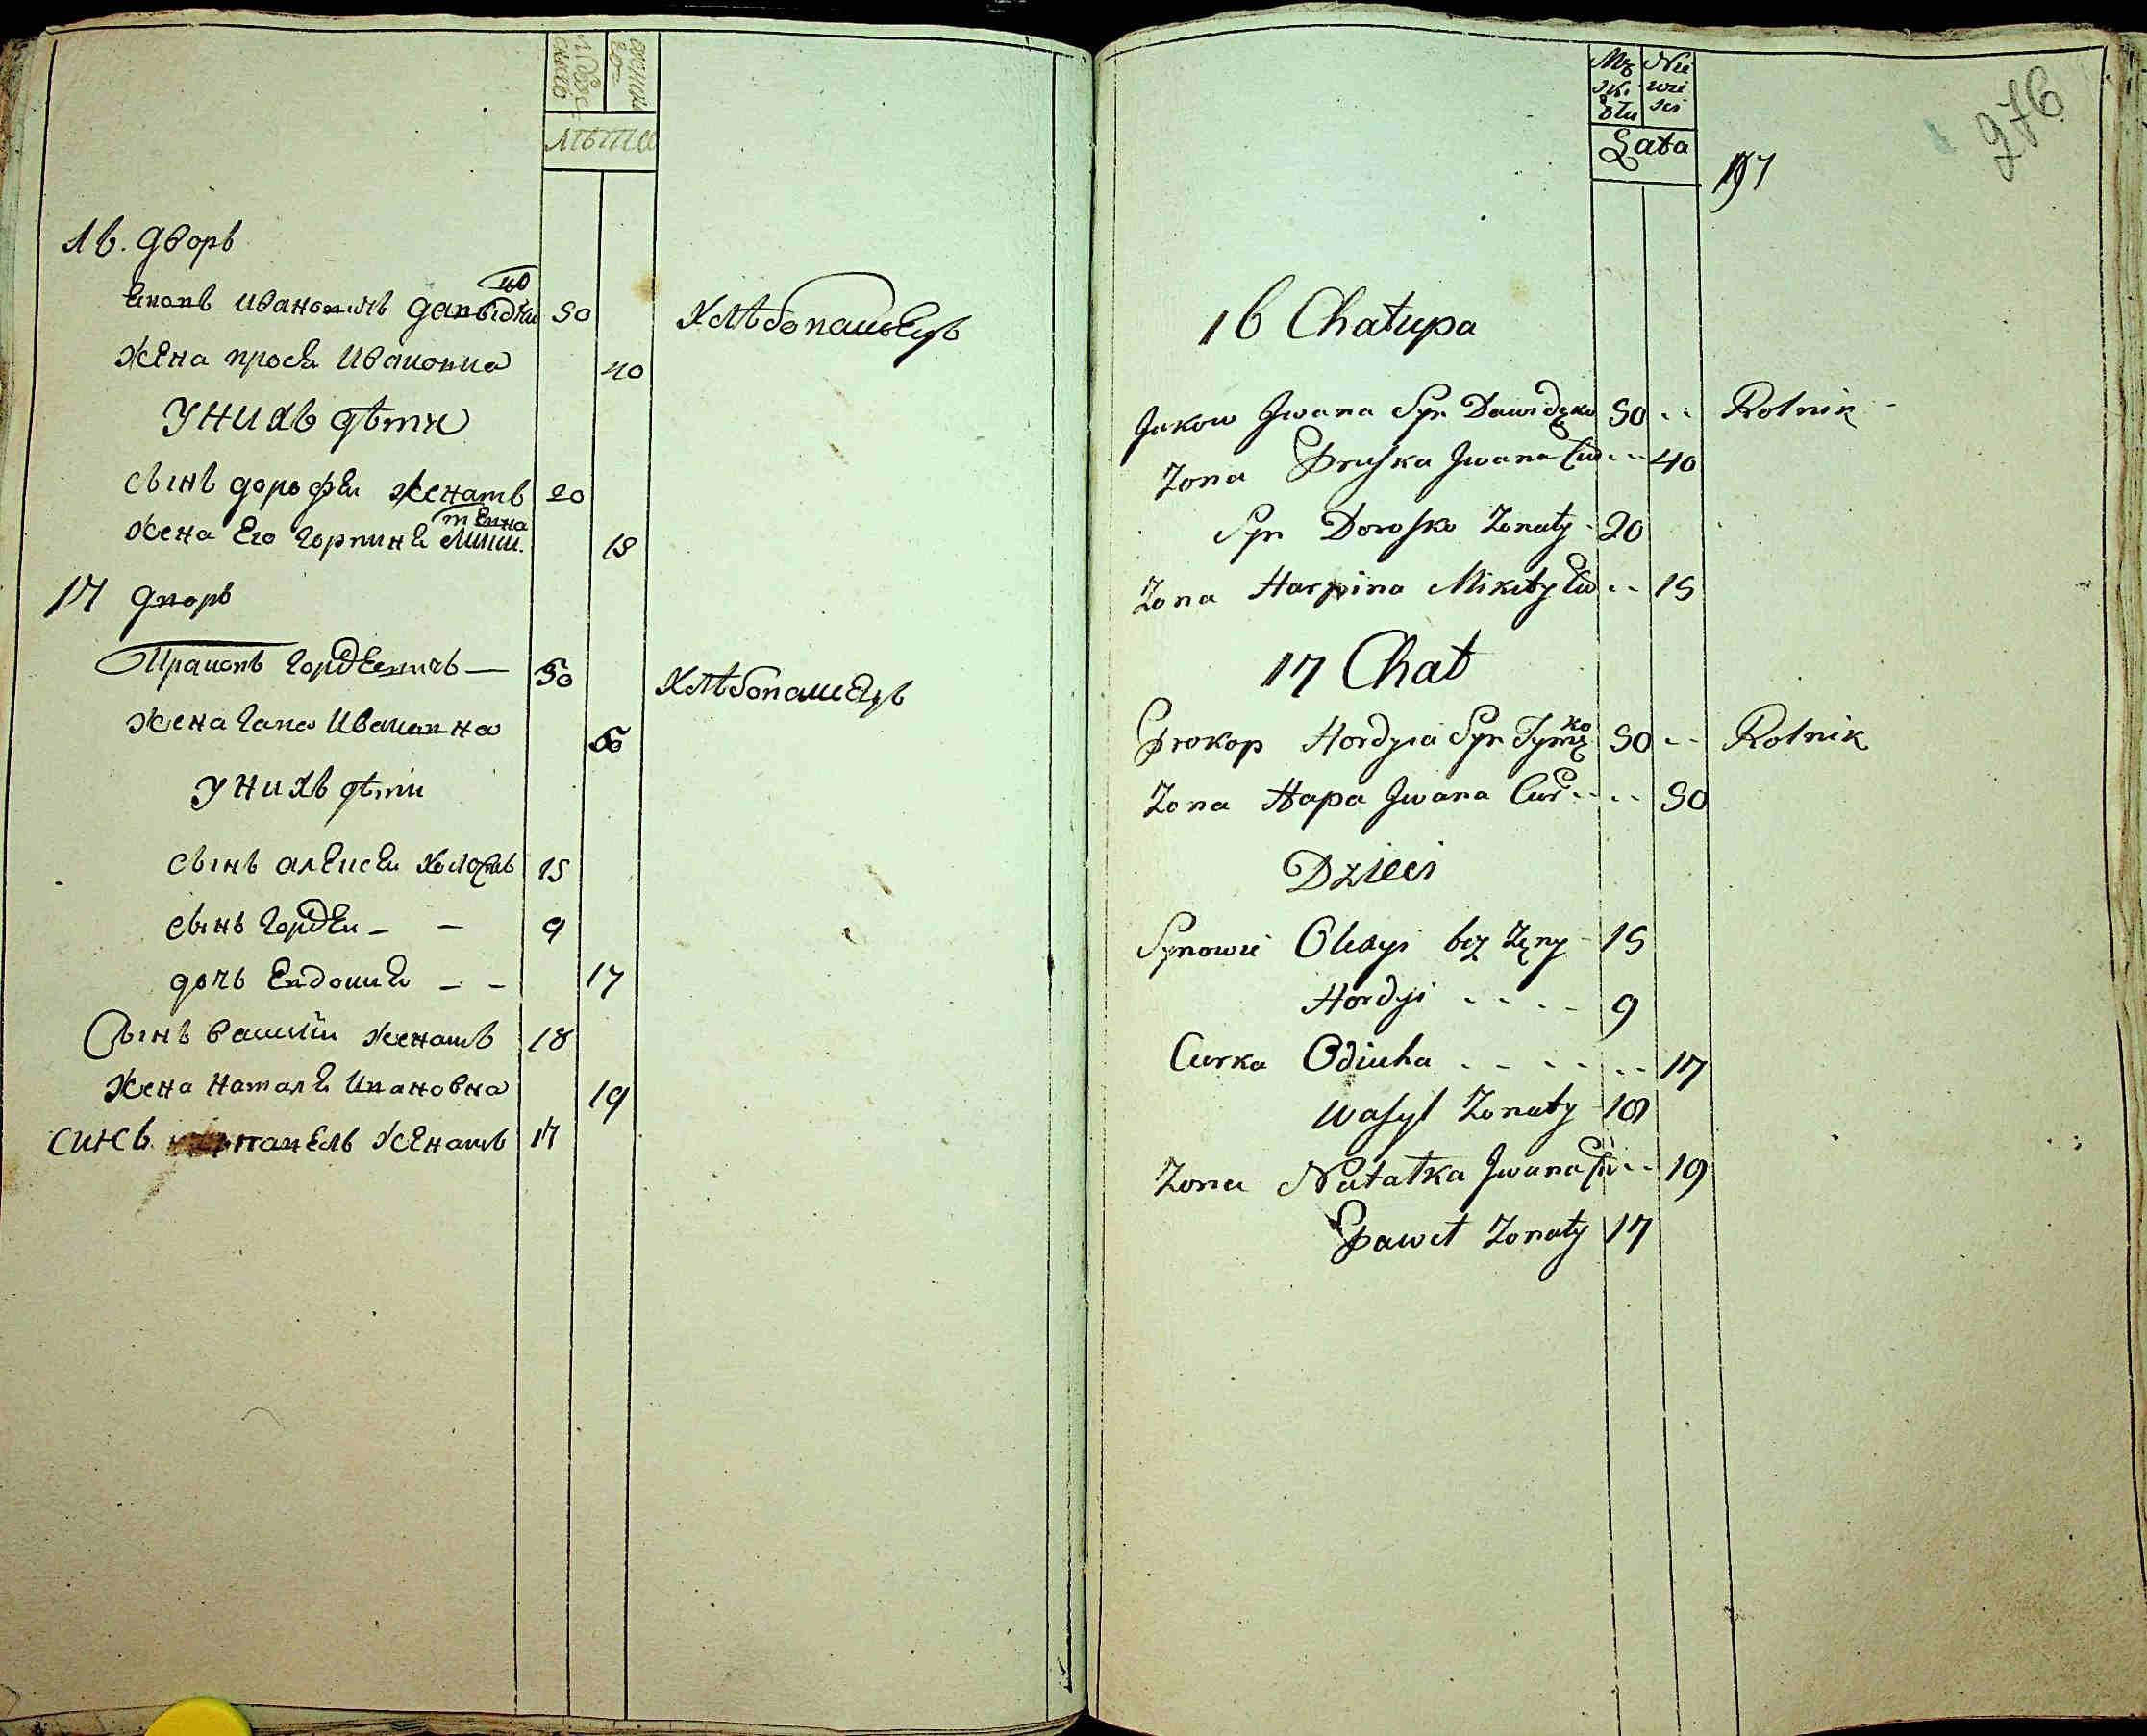 лѣта
16. дворъ
Яковъ Ивановичъ давыденко 50 хлѣбопашецъ
жена прося Ивановна 40
У нихъ дѣти
сынъ дорофеи женатъ 20
жена Его горпина Микитена 18
17 дворъ
Пракопъ гордеевичъ — 50 хлѣбопашецъ
жена гапа Ивановна 50
У нихъ дѣти
сынъ алексеи холостъ 15
сынъ гордеи – – 9
дочь Евдокия – – 17
Сынъ василий женатъ 18
жена наталя Ивановна 19
синъ павелъ женатъ 17
276
197
Męskiey płci Niewieści
Lata
16 Chałupa
Jakow Jwana Syn Dawidęko 50 -- Rolnik
Zona Pruska Jwana Cur -- 40
Syn Dorosko Zonaty - 20
Zona Harpina Mikity Cur -- 18
17 Chat
Prokop Hordyia Syn 50 -- Rolnik
Zona Hapa Jwana Cur -- -- 50
Dzieci
Synowie Olexyi bez Zęny - 15
Hordyi - - - - 9
Curka Odiuha - - - - -- 17
Wasyl Zonaty - 18
Zona Natałka Jwana Cur -- 19
Paweł Zonaty 17